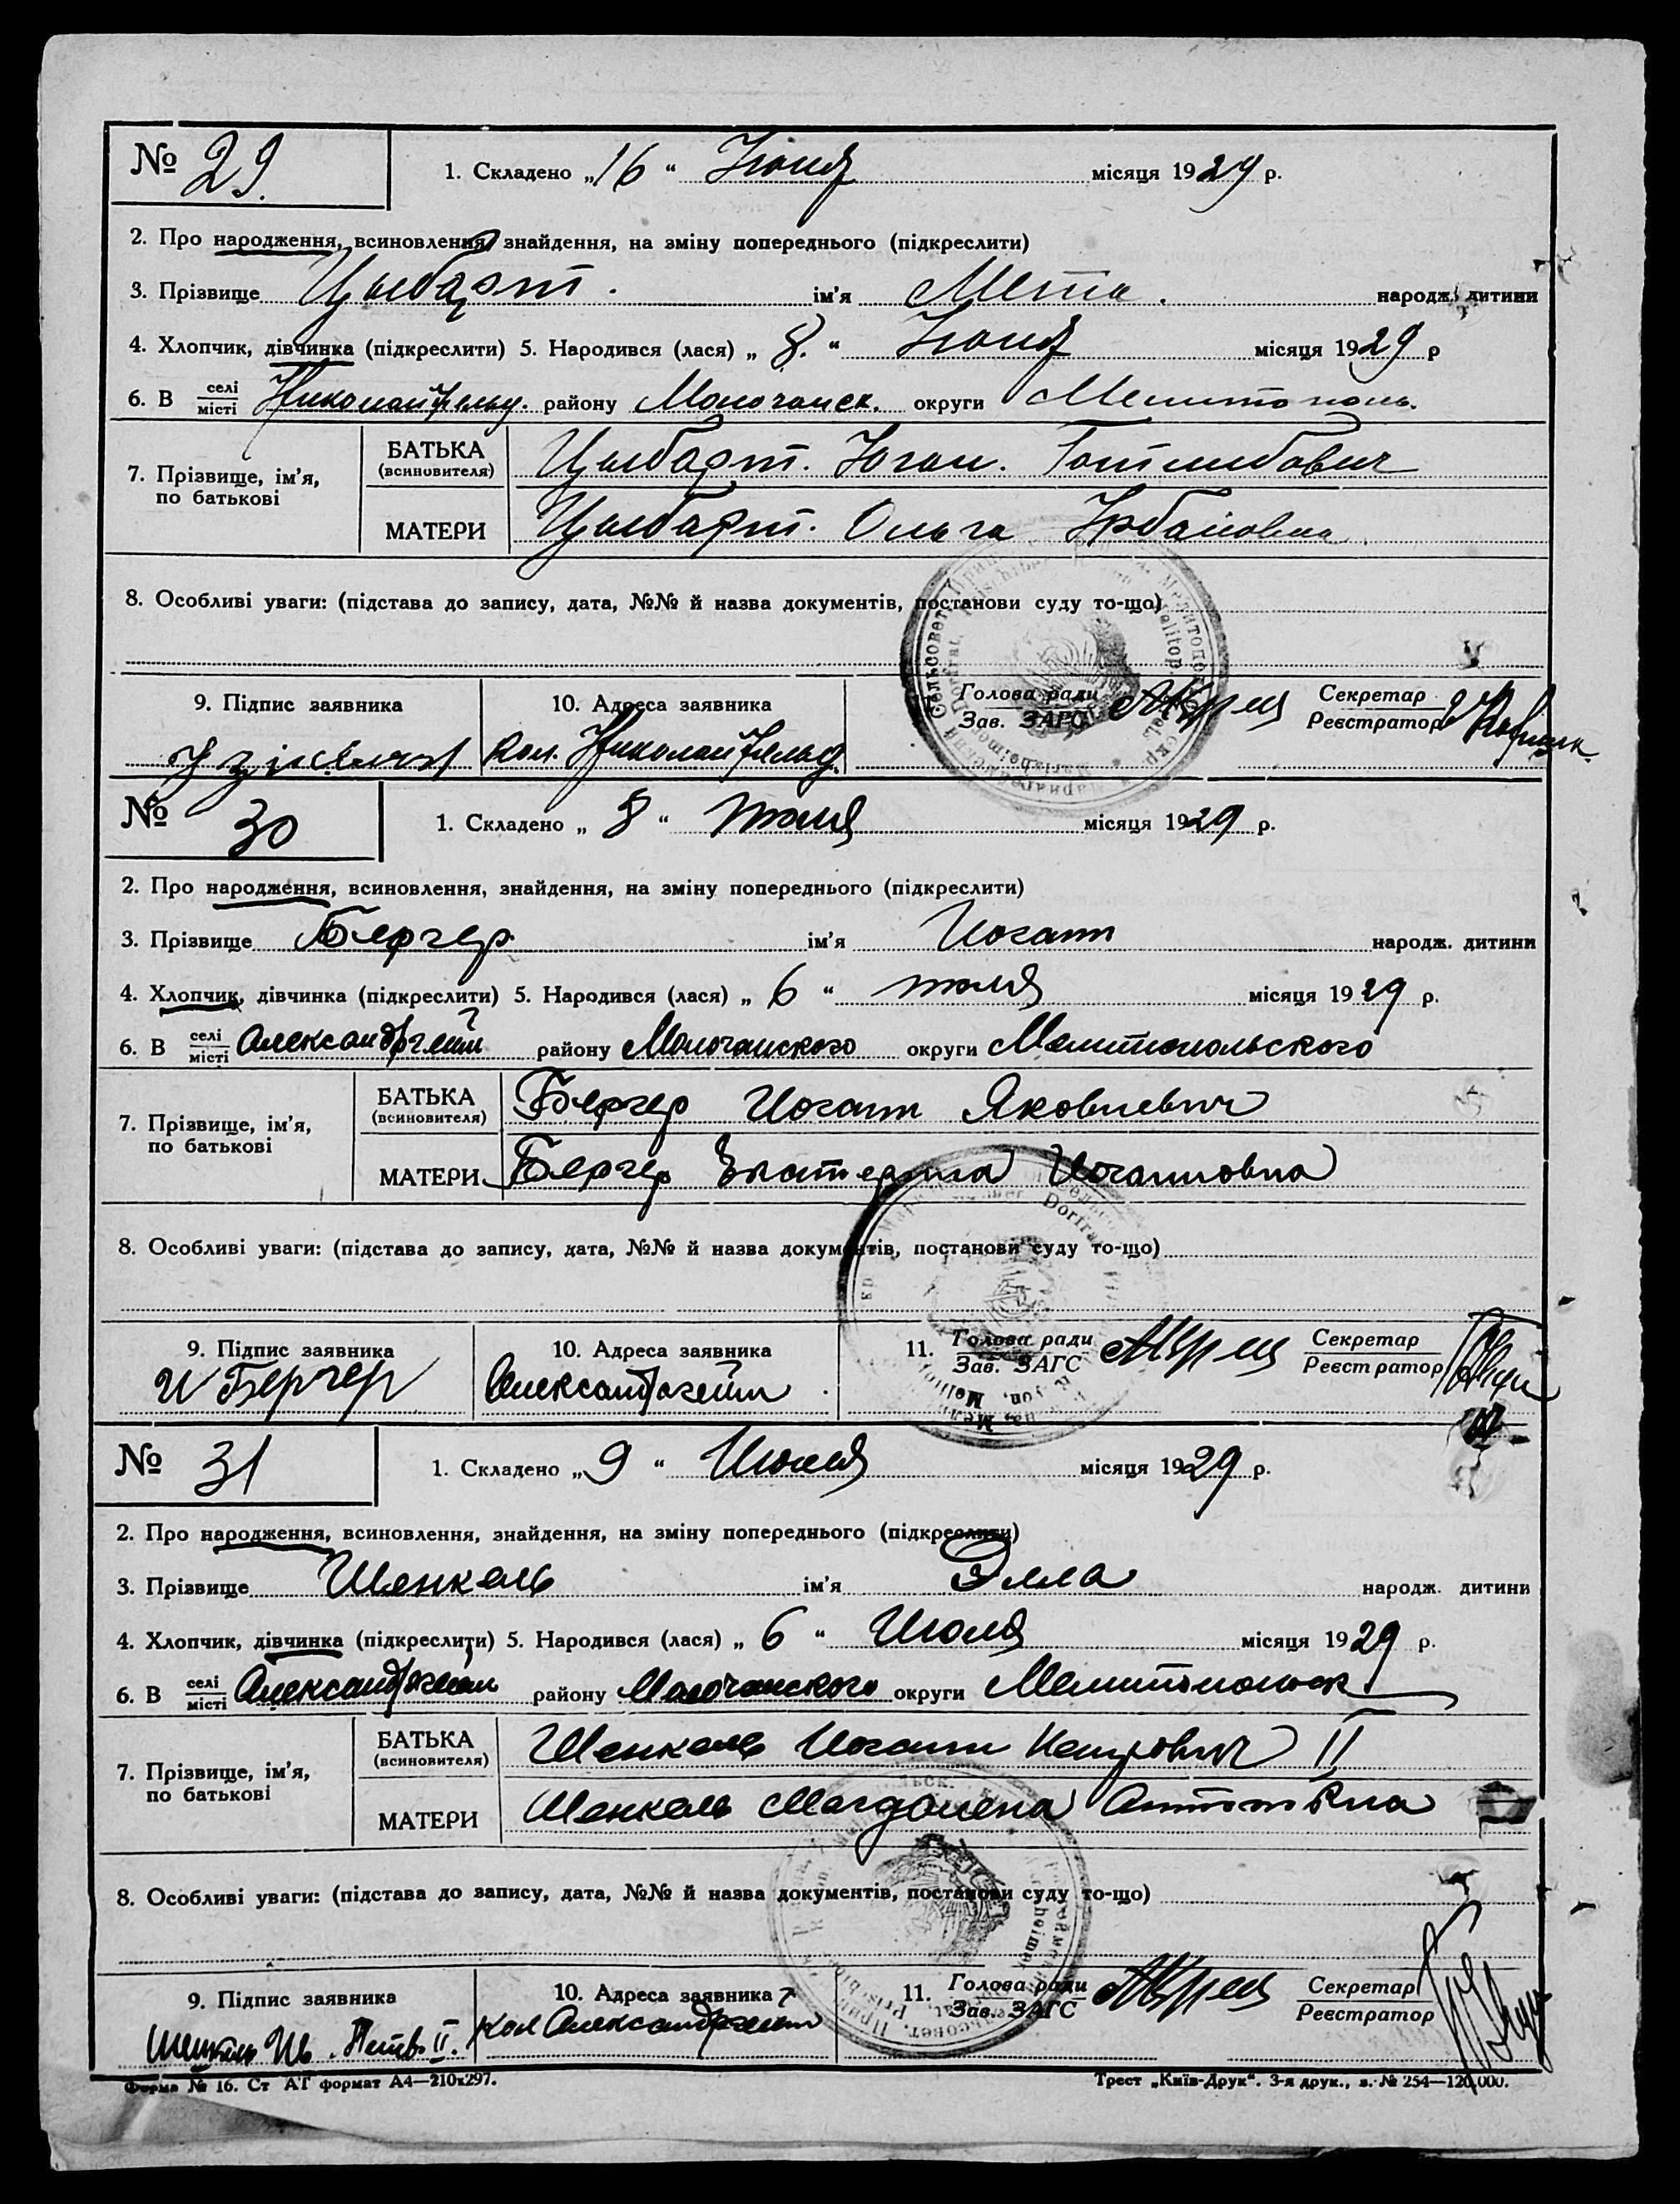 № 29. 1. Складено „16“ Июня місяця 1929 р.
2. Про народження, всиновлення, знайдення, на зміну попереднього (підкреслити)
3. Прізвище Цыбарт. ім'я Мета. народж. дитини
4. Хлопчик, дівчинка (підкреслити) 5. Народився (лася) „8.“ Июня місяця 1929 р
6. В селі місті Николайфельд. району Молочанск. округи Мелитополь.
7. Прізвище, ім'я, по батькові
БАТЬКА (всиновителя) Цыбарт. Юган. Готлибович
МАТЕРИ Цыбарт. Ольга Урбановна
8. Особливі уваги: (підстава до запису, дата, №№ й назва документів, постанови суду то-що)
9. Підпис заявника 10. Адреса заявника Голова ради Секретар
Зав. ЗАГС Реєстратор
кол. Николайфельд.
№ 30 1. Складено „8“ июля місяця 1929 р.
2. Про народження, всиновлення, знайдення, на зміну попереднього (підкреслити)
3. Прізвище Бергер ім'я Иоганн народж. дитини
4. Хлопчик, дівчинка (підкреслити) 5. Народився (лася) „6“ июля місяця 1929 р.
6. В селі місті Александргейм району Молочанского округи Мелитопольского
7. Прізвище, ім'я, по батькові
БАТЬКА (всиновителя) Бергер Иоганн Яковлевич
МАТЕРИ Бергер Екатерина Иоганновна
8. Особливі уваги: (підстава до запису, дата, №№ й назва документів, постанови суду то-що)
9. Підпис заявника 10. Адреса заявника 11. Голова ради Секретар
Зав. ЗАГС Реєстратор
И Бергер Александргейм
№ 31 1. Складено „9“ Июля місяця 1929 р.
2. Про народження, всиновлення, знайдення, на зміну попереднього (підкреслити)
3. Прізвище Шенкель ім'я Элла народж. дитини
4. Хлопчик, дівчинка (підкреслити) 5. Народився (лася) „6“ Июля місяця 1929 р.
6. В селі місті Александргейм району Молочанского округи Мелитопольск
7. Прізвище, ім'я, по батькові
БАТЬКА (всиновителя) Шенкель Иоганн Петрович II
МАТЕРИ Шенкель Магдалена Антоновна
8. Особливі уваги: (підстава до запису, дата, №№ й назва документів, постанови суду то-що)
9. Підпис заявника 10. Адреса заявника 11. Голова ради Секретар
Зав. ЗАГС Реєстратор
Шенкель Ив. Петв. II. кол Александргейм
Форма № 16. Ст АГ формат А4—210х297. Трест „Київ-Друк“. 3-я друк., з. № 254—120,000.